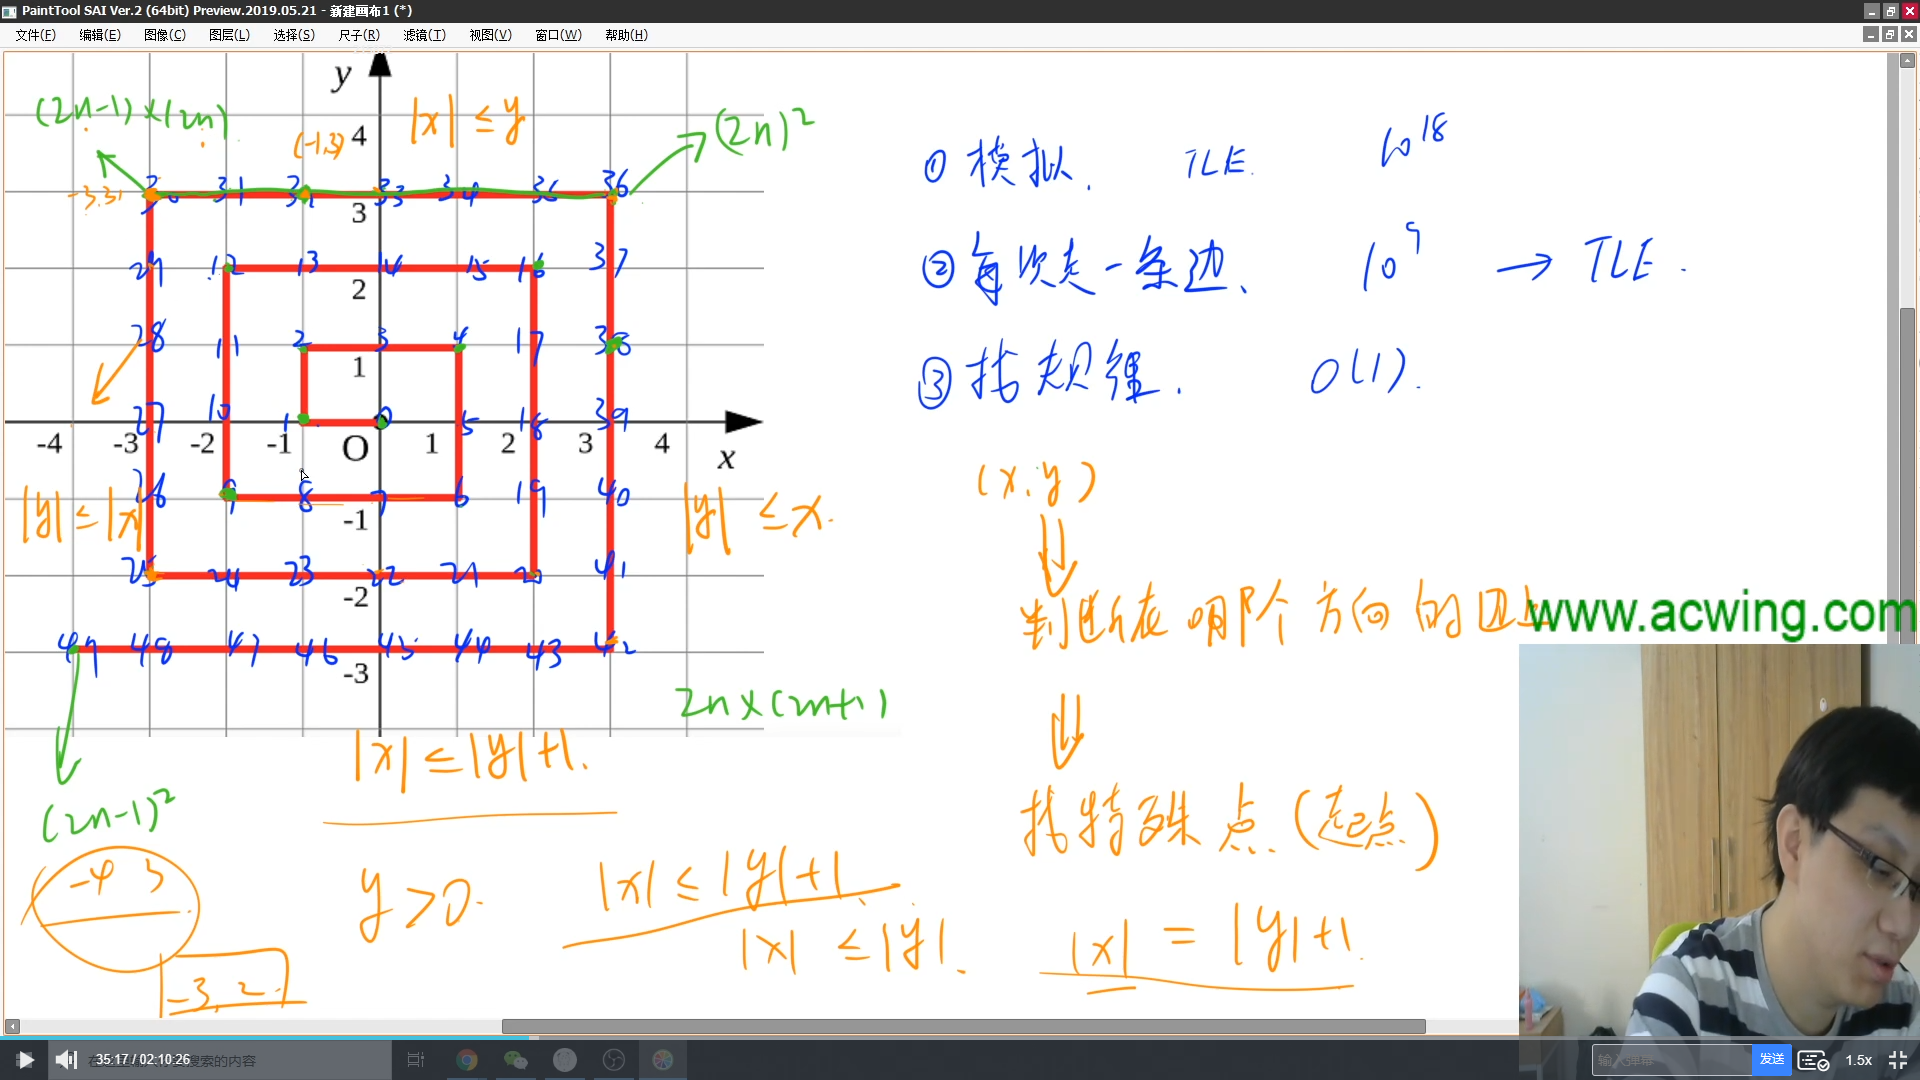 PaintTool SAI Ver.2 (64bit) Preview.2019.05.21 - 新建画布1 (*)
文件(F) 编辑(E) 图像(C) 图层(L) 选择(S) 尺子(R) 滤镜(T) 视图(V) 窗口(W) 帮助(H)
y
(2n-1)×(2n)
|x| ≤ y
(2n)²
(-1,3)
4
-3,3
30 31 32 33 34 35 36
3
29 12 13 14 15 16 37
2
28 11 2 3 4 17 38
1
27 10 1 0 5 18 39
-4 -3 -2 -1 O 1 2 3 4 x
26 9 8 7 6 19 40
-1
|y| ≤ |x|
|y| ≤ x.
25 24 23 22 21 20 41
-2
49 48 47 46 45 44 43 42
-3
2n×(2n+1)
|x| ≤ |y|+1.
(2n-1)²
-4 3
-3, 2.
y>0.
|x| ≤ |y|+1
|x| ≤ |y|.
|x| = |y|+1.
① 模拟. TLE. 10¹⁸
② 每次走一条边. 10⁹ → TLE.
③ 找规律. O(1).
(x,y)
判断在哪个方向的边上
找特殊点(起点)
www.acwing.com
35:17 / 02:10:26
输入弹幕
发送
1.5x